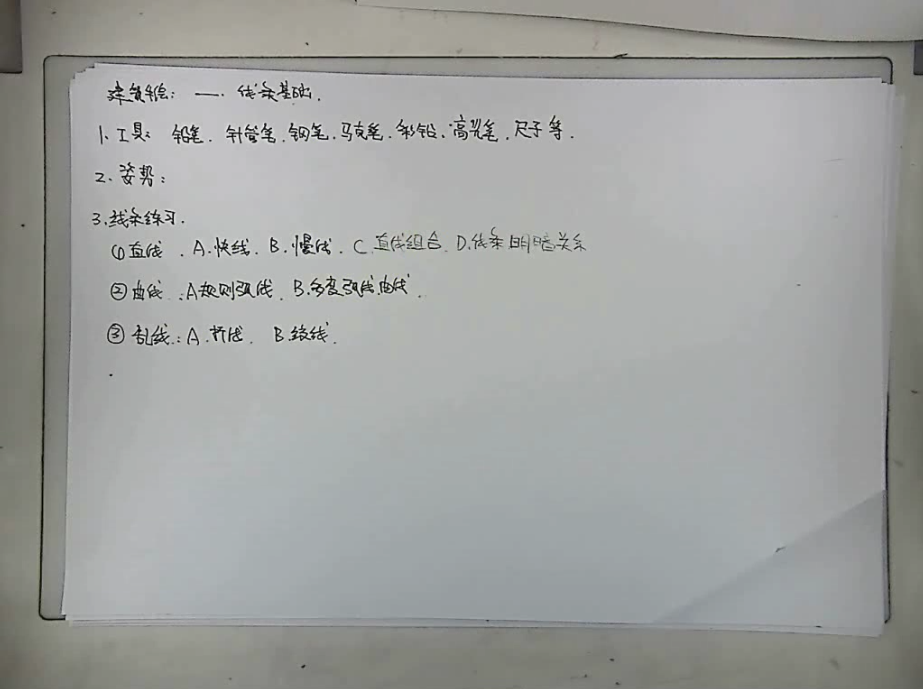 建筑手绘：一. 线条基础.
1. 工具：铅笔. 针管笔. 钢笔. 马克笔. 彩铅. 高光笔. 尺子等.
2. 姿势：
3. 线条练习.
①直线. A.快线. B.慢线. C.直线组合. D.线条明暗关系
②曲线：A规则弧线. B.多变弧线曲线.
③乱线：A.折线. B.线.